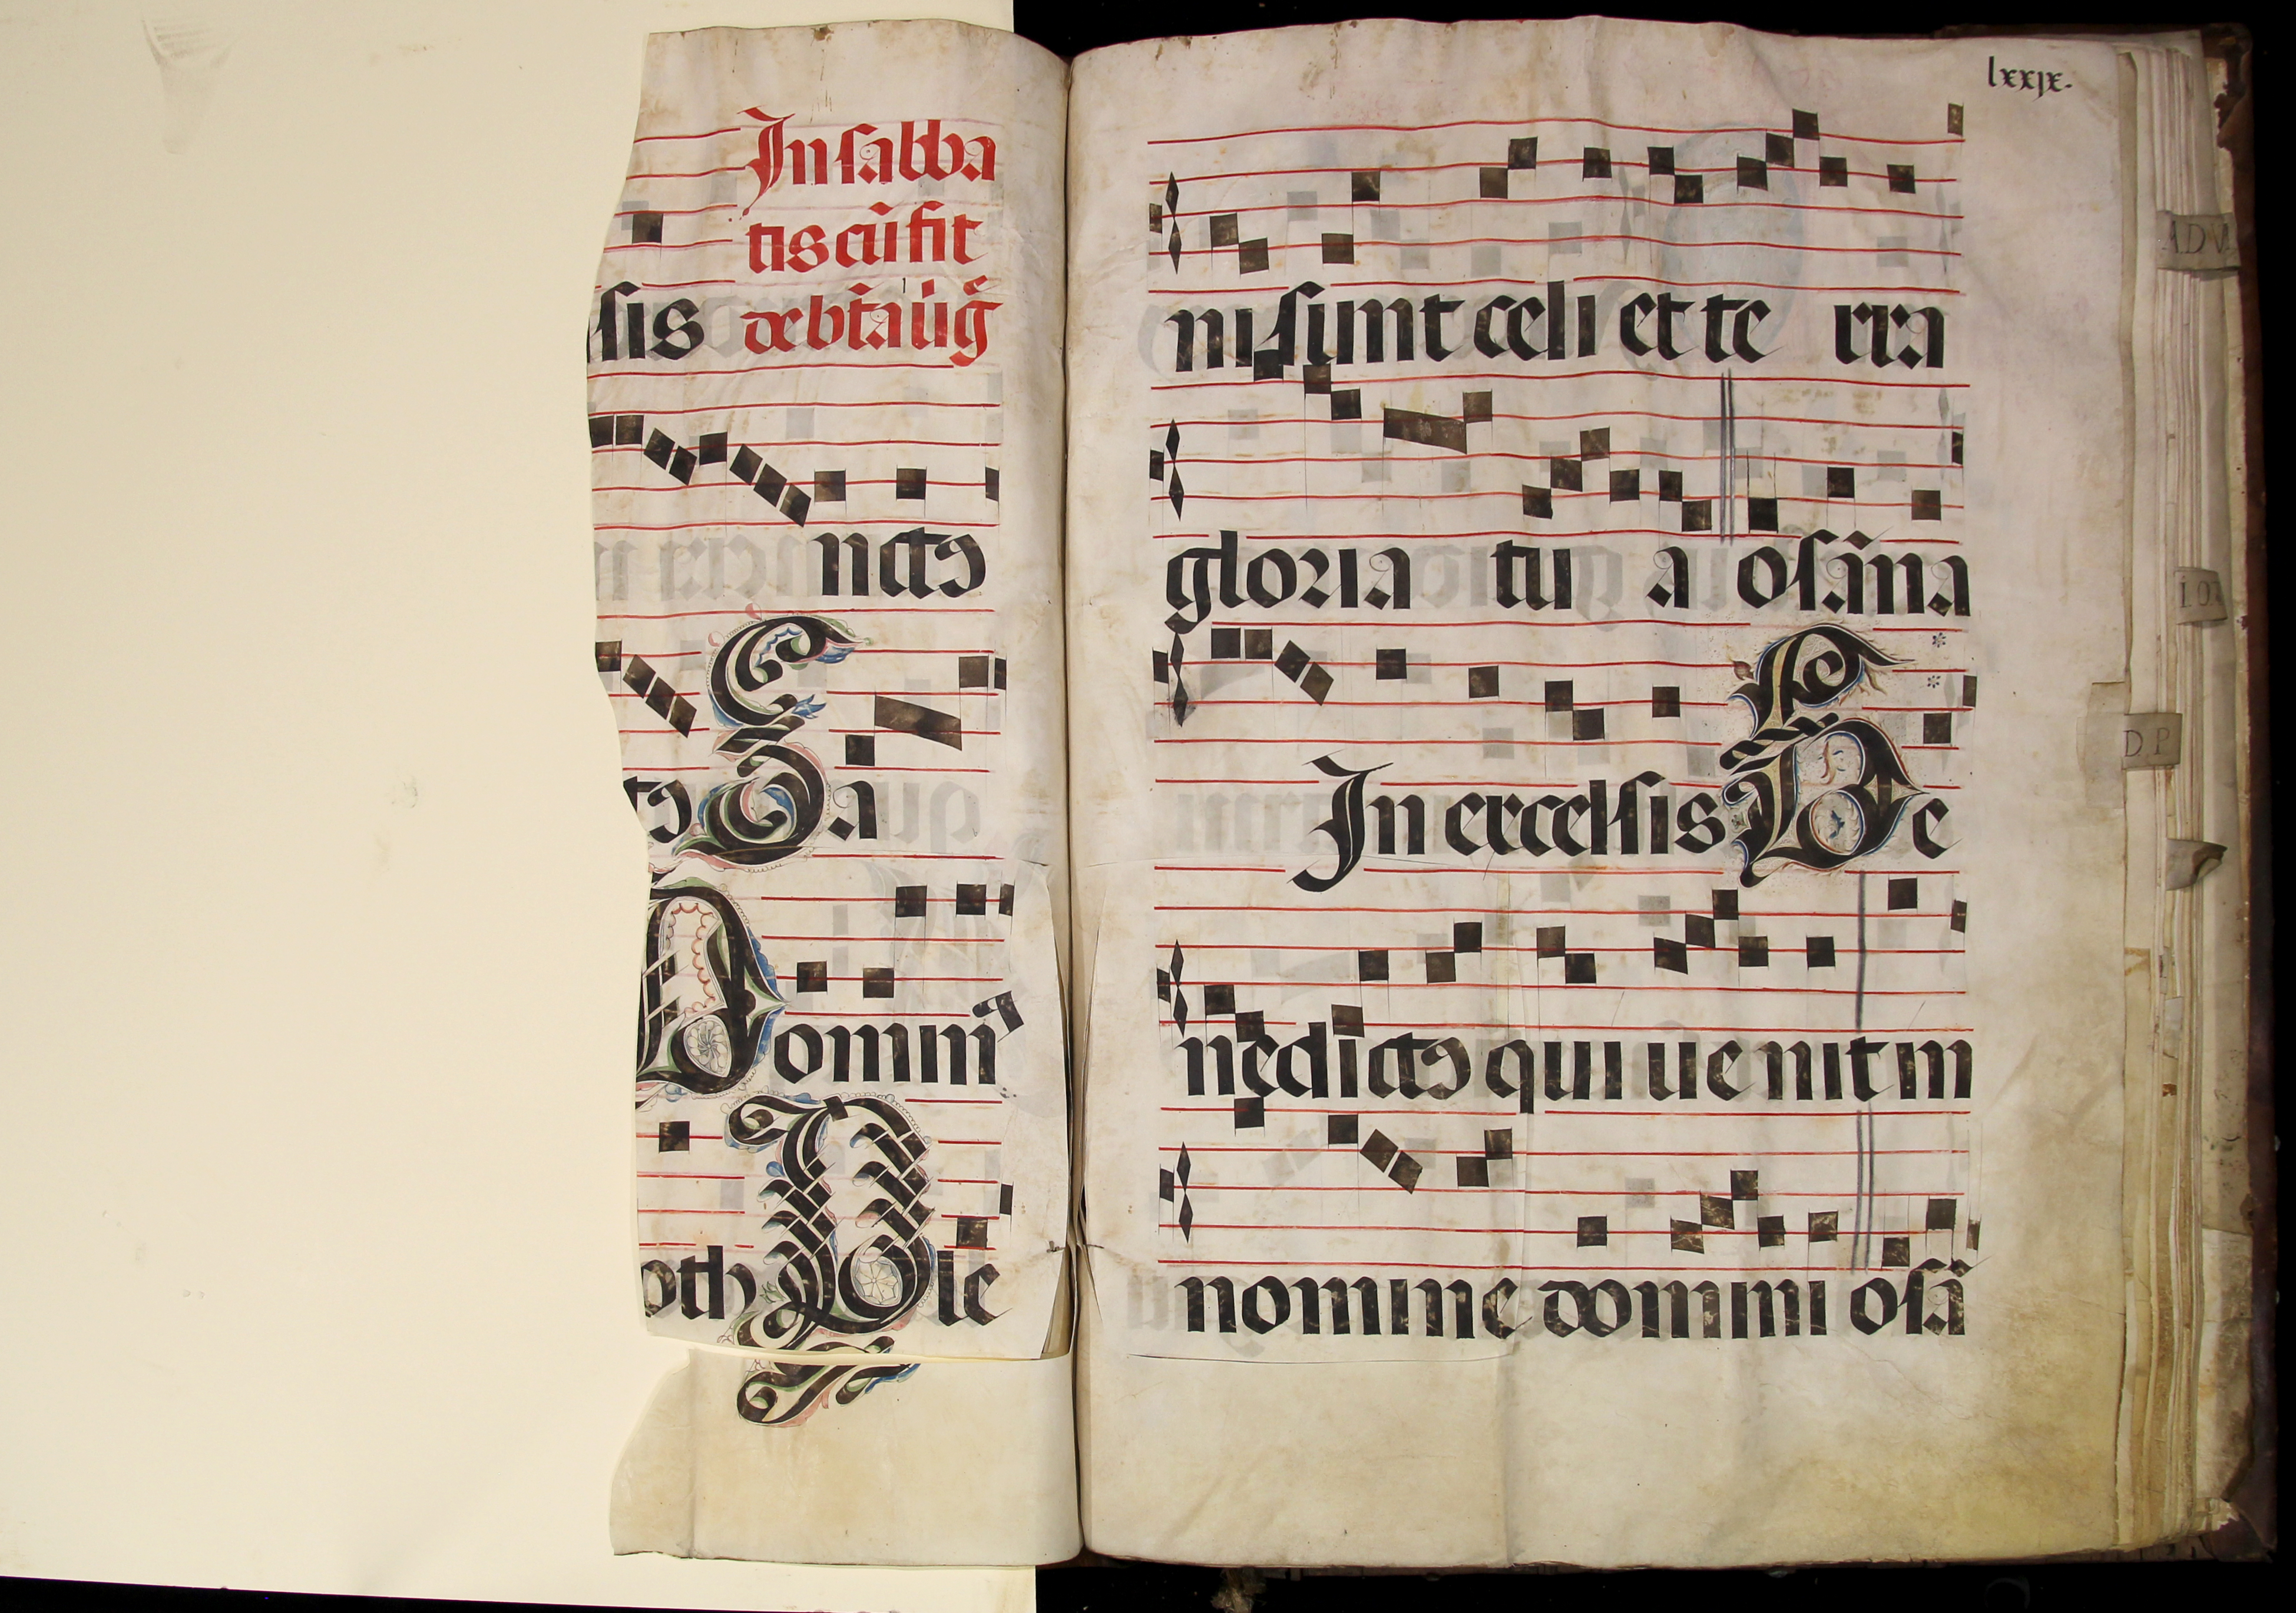 In sabba
tis cū fit
sis de btā uīg̃
nctꝯ
tꝯ Sa
Domin⁹
oth Ple
lxxjx.
ni sunt celi et te rra
gloria tu a osāna
In excelsis Be
nedictꝯ qui uenit in
nomine domini osā
ADV
DP